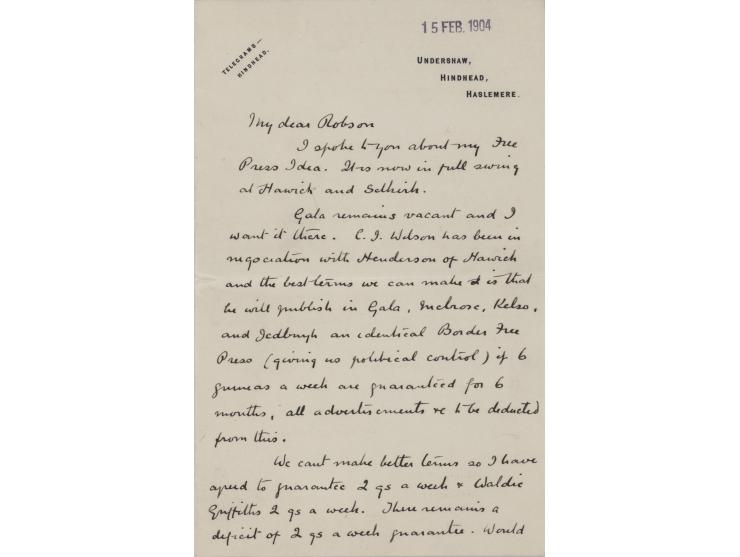 15 FEB. 1904
TELEGRAMS—
HINDHEAD.
UNDERSHAW,
HINDHEAD,
HASLEMERE.
My dear Robson
I spoke to you about my Free
Press Idea. It is now in full swing
at Hawick and Selkirk.
Gala remains vacant and I
want it there. C. J. Wilson has been in
negociation with Henderson of Hawick
and the best terms we can make is that
he will publish in Gala, Melrose, Kelso,
and Jedburgh an identical Border Free
Press (giving us political control) if 6
guineas a week are guaranteed for 6
months, all advertisements &c to be deducted
from this.
We cant make better terms so I have
agreed to guarantee 2 gs a week & Waldie
Griffiths 2 gs a week. There remains a
deficit of 2 gs a week guarantee. Would